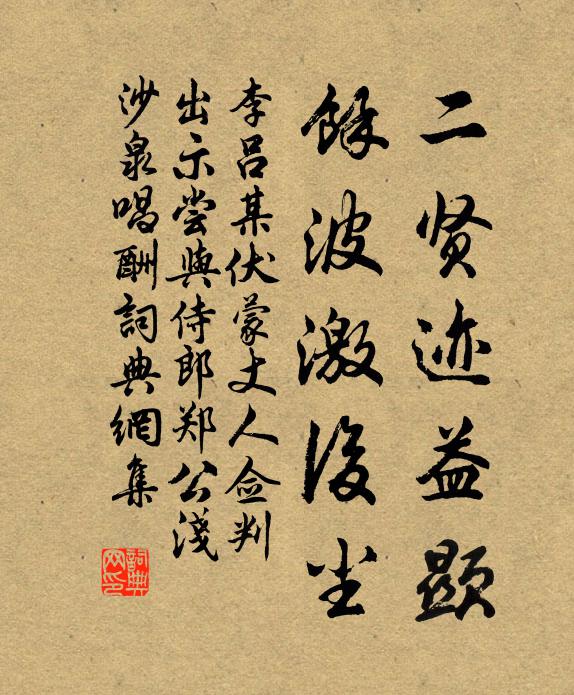 二贤迹益显
餘波激後尘
李吕某伏蒙丈人佥判
出示尝與侍郎郑公淺
沙泉唱酬詞典網集
詞典网印